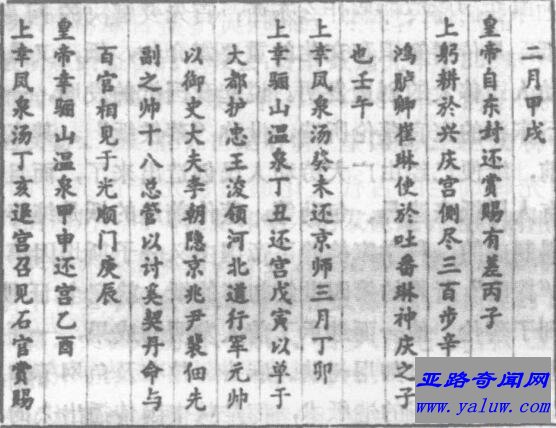 二月甲戌
皇帝自东封还赏赐有差丙子
上躬耕於兴庆宫侧尽三百步辛
鸿胪卿崔琳使於吐番琳神庆之子
也壬午
上幸凤泉汤癸未还京师三月丁卯
上幸骊山温泉丁丑还宫戊寅以单于
大都护忠王浚领河北道行军元帅
以御史大夫李朝隐京兆尹裴伷先
副之帅十八总管以讨奚契丹命与
百官相见于光顺门庚辰
皇帝幸骊山温泉甲申还宫乙酉
上幸凤泉汤丁亥还宫召见百官赏赐
亚路奇闻网
www.yaluw.com